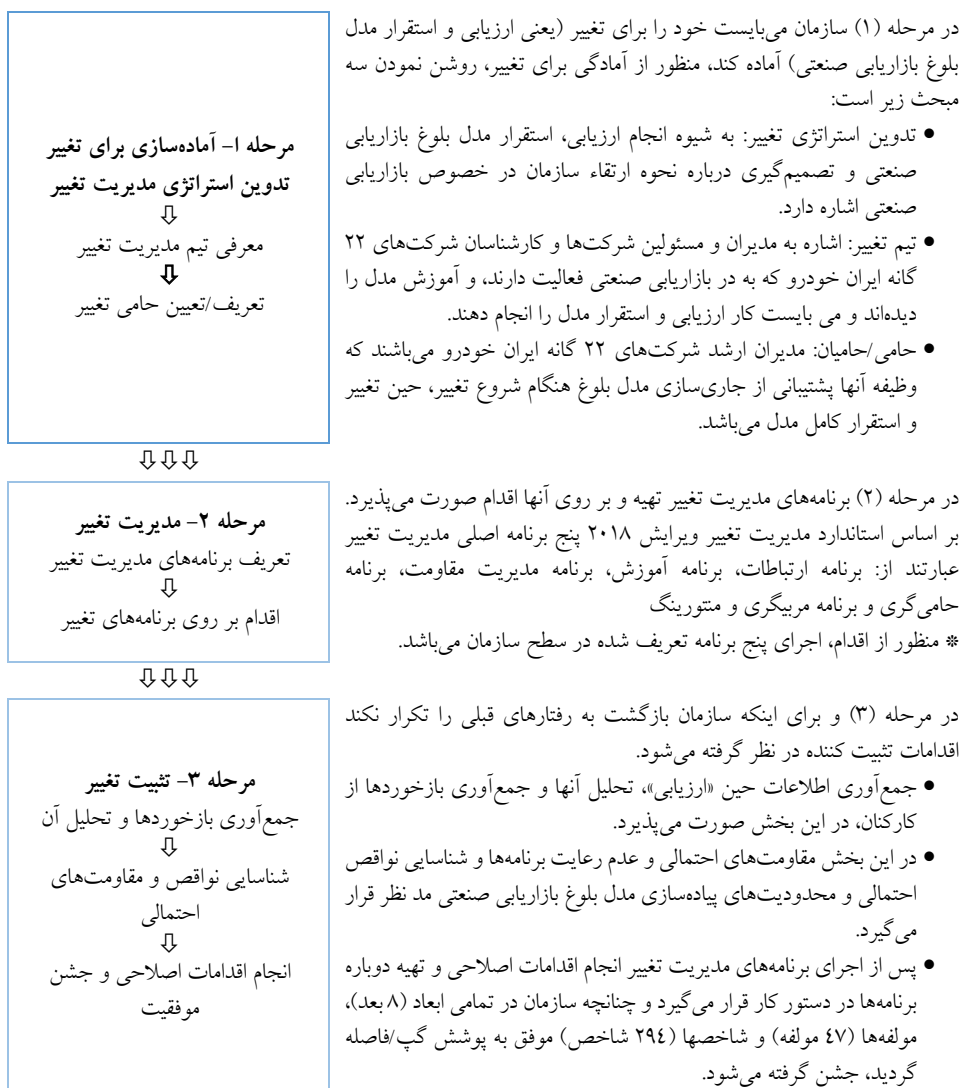 در مرحله (۱) سازمان می‌بایست خود را برای تغییر (یعنی ارزیابی و استقرار مدل
بلوغ بازاریابی صنعتی) آماده کند، منظور از آمادگی برای تغییر، روشن نمودن سه
مبحث زیر است:
• تدوین استراتژی تغییر: به شیوه انجام ارزیابی، استقرار مدل بلوغ بازاریابی
صنعتی و تصمیم‌گیری درباره نحوه ارتقاء سازمان در خصوص بازاریابی
صنعتی اشاره دارد.
• تیم تغییر: اشاره به مدیران و مسئولین شرکت‌ها و کارشناسان شرکت‌های ۲۲
گانه ایران خودرو که به در بازاریابی صنعتی فعالیت دارند، و آموزش مدل را
دیده‌اند و می بایست کار ارزیابی و استقرار مدل را انجام دهند.
• حامی/حامیان: مدیران ارشد شرکت‌های ۲۲ گانه ایران خودرو می‌باشند که
وظیفه آنها پشتیبانی از جاری‌سازی مدل بلوغ هنگام شروع تغییر، حین تغییر
و استقرار کامل مدل می‌باشد.
مرحله ۱- آماده‌سازی برای تغییر
تدوین استراتژی مدیریت تغییر
⇩
معرفی تیم مدیریت تغییر
⇩
تعریف/تعیین حامی تغییر
⇩⇩⇩
در مرحله (۲) برنامه‌های مدیریت تغییر تهیه و بر روی آنها اقدام صورت می‌پذیرد.
بر اساس استاندارد مدیریت تغییر ویرایش ۲۰۱۸ پنج برنامه اصلی مدیریت تغییر
عبارتند از: برنامه ارتباطات، برنامه آموزش، برنامه مدیریت مقاومت، برنامه
حامی‌گری و برنامه مربیگری و منتورینگ
* منظور از اقدام، اجرای پنج برنامه تعریف شده در سطح سازمان می‌باشد.
مرحله ۲- مدیریت تغییر
تعریف برنامه‌های مدیریت تغییر
⇩
اقدام بر روی برنامه‌های تغییر
⇩⇩⇩
در مرحله (۳) و برای اینکه سازمان بازگشت به رفتارهای قبلی را تکرار نکند
اقدامات تثبیت کننده در نظر گرفته می‌شود.
• جمع‌آوری اطلاعات حین «ارزیابی»، تحلیل آنها و جمع‌آوری بازخوردها از
کارکنان، در این بخش صورت می‌پذیرد.
• در این بخش مقاومت‌های احتمالی و عدم رعایت برنامه‌ها و شناسایی نواقص
احتمالی و محدودیت‌های پیاده‌سازی مدل بلوغ بازاریابی صنعتی مد نظر قرار
می‌گیرد.
• پس از اجرای برنامه‌های مدیریت تغییر انجام اقدامات اصلاحی و تهیه دوباره
برنامه‌ها در دستور کار قرار می‌گیرد و چنانچه سازمان در تمامی ابعاد (۸ بعد)،
مولفه‌ها (٤٧ مولفه) و شاخصها (٢٩٤ شاخص) موفق به پوشش گپ/فاصله
گردید، جشن گرفته می‌شود.
مرحله ۳- تثبیت تغییر
جمع‌آوری بازخوردها و تحلیل آن
⇩
شناسایی نواقص و مقاومت‌های
احتمالی
⇩
انجام اقدامات اصلاحی و جشن
موفقیت